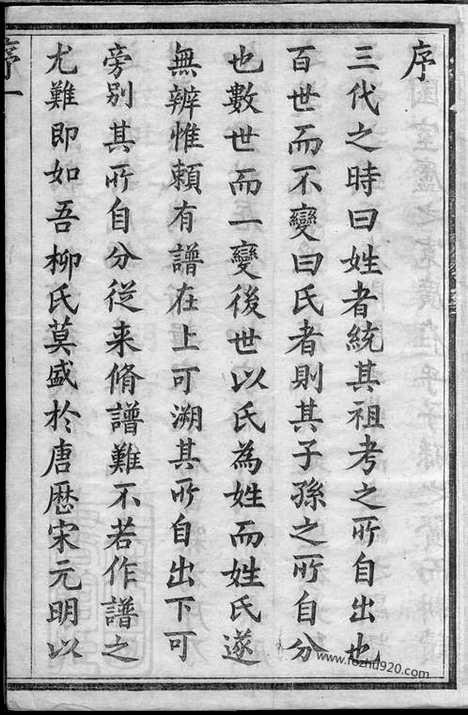 序
三代之時曰姓者統其祖考之所自出也
百世而不變曰氏者則其子孫之所自分
也數世而一變後世以氏為姓而姓氏遂
無辨惟頼有譜在上可溯其所自出下可
旁別其所自分從来脩譜難不若作譜之
尤難即如吾柳氏莫盛於唐歷宋元明以
序一
www.fozhu920.com